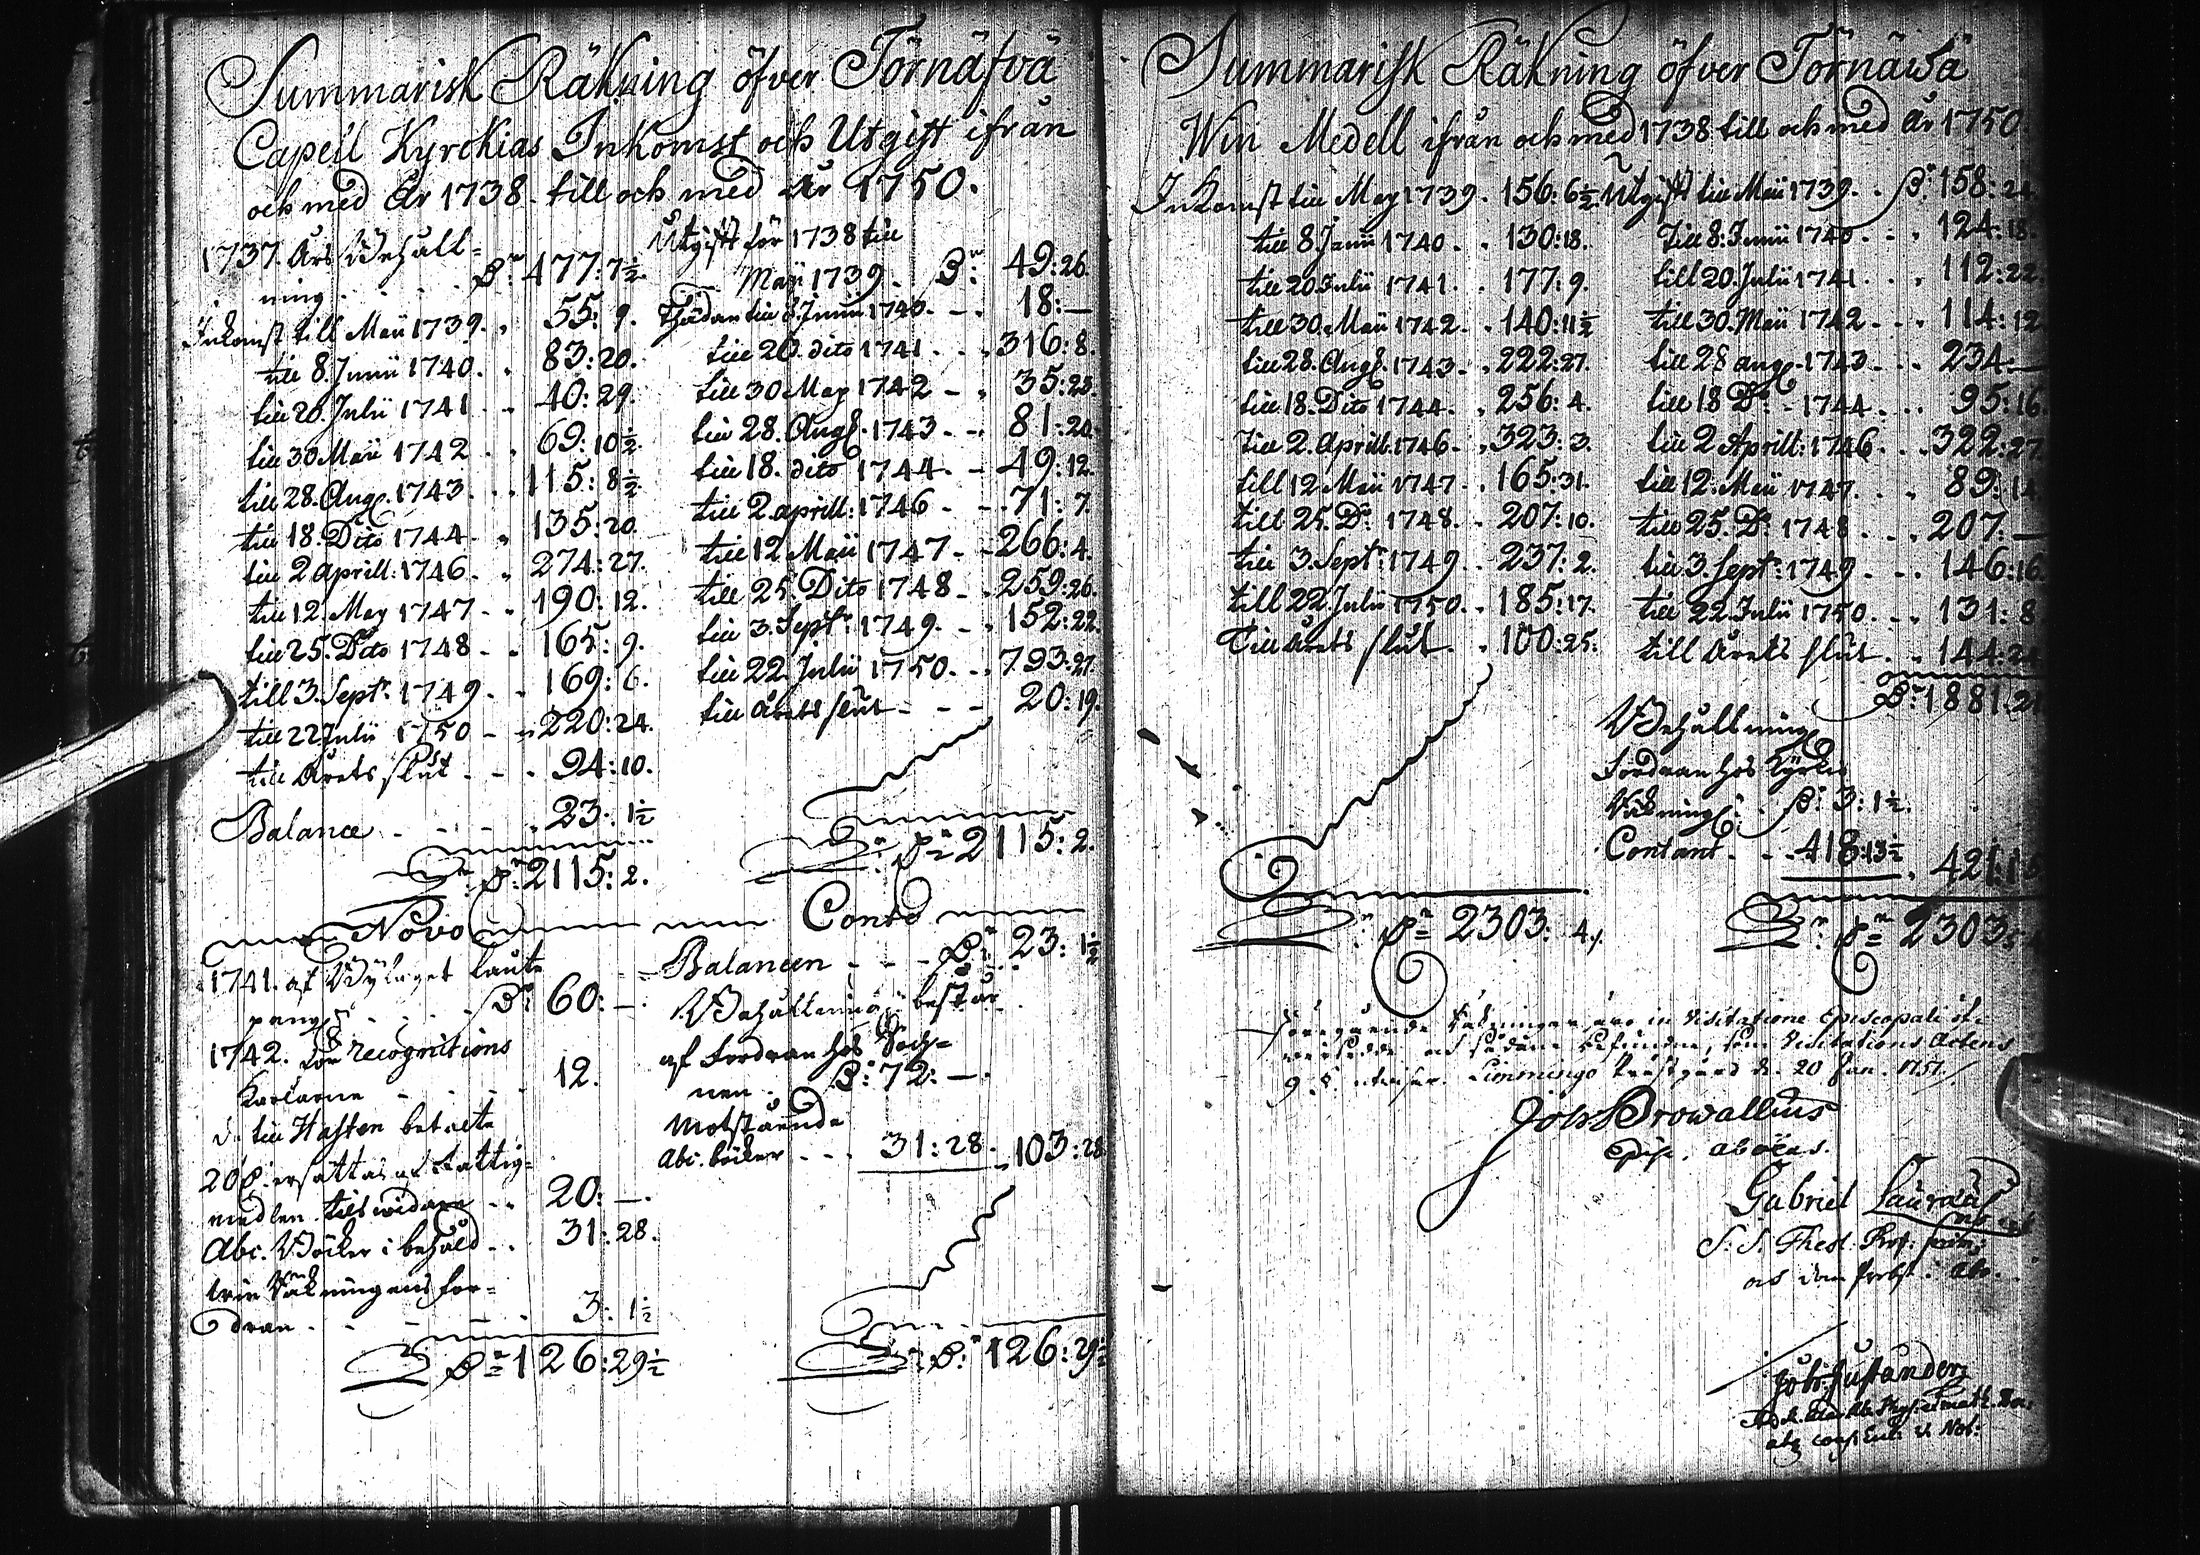 Summarisk Räkning öfver Törnäfvä
Capell Kyrckias Inkomst och Utgift ifrån
och med År 1738. till och med År 1750.
1737. Års Behåll=
ning . . . . 477:7½.
Inkomst till Maii 1739. . 55: 9.
till 8. Junii 1740. . 83:20.
till 20. Julii 1741 . . 40:29.
till 30 Maii 1742 . . 69:10½
till 28. Aug. 1743. . . 115:8½
till 18. Dito 1744 . . 135:20.
till 2 aprill: 1746. . 274:27.
till 12. May 1747 . . 190:12.
till 25. Dito 1748 . . 165: 9.
till 3. Sept: 1749. . 169: 6.
till 22 Julii 1750 . . 220:24.
till Årets slut . . . 94:10.
Balance . . . . . 23: 1½
2115:2.
Utgift för 1738 till
Maii 1739. 49:26.
Thädan till 8. Junii 1740. . 18:—
till 20. dito 1741 . . . 316:8.
till 30 May 1742 . . 35:23.
till 28. Aug. 1743 . . 81:20.
till 18. dito 1744. . 49:12.
till 2 aprill: 1746 . . 71: 7.
till 12 Maii 1747. . 266:4.
till 25. Dito 1748 . . 259:26.
till 3. Sept: 1749. . . 152:22.
till 22. Julii 1750. . . 793:27.
till årets slut . . . 20:19.
2115:2.
Novo Conto
1741. af
60:—.
1742. recognitions
Karlarne . . . 12.
d. till Hasten betalte
20 ersättas af Fattig=
medlen tilswidare . . 20:—.
Abc. Böcker i behåld . . 31:28.
Win Räkningens for=
dran . . . . . 3: 1½
126:29½
Balancen . . . 23: 1½
Behållning består
af Fordran hos Sock=
nen . 72:—.
Motstående
Abc. böcker . . . 31:28. 103:28
126:29½
Summarisk Räkning öfver Törnäwä
Win Medell ifrån och med 1738 till och med År 1750
Inkomst till May 1739. 156:6½.
till 8 Junii 1740. . 130:18.
till 20 Julii 1741. . 177:9.
till 30. Maii 1742. . 140:11½
till 28. Aug. 1743. . 222:27.
till 18. Dito 1744. . 256: 4.
till 2. aprill. 1746. . 323: 3.
till 12. Maii 1747. . 165:31.
till 25. D:o 1748. . 207:10.
till 3. Sept: 1749. . 237:2.
till 22 Julii 1750. . 185:17.
Till Årets slut. . 100:25.
2303: 4.
Utgift till Maii 1739. . 158:24
till 8: Junii 1740 . . . 124:18.
till 20. Julii 1741. . . 112:22
till 30. Maii 1742 . . . 114:12
till 28 aug. 1743 . . . 234—
till 18 D:o 1744. . . 95:16.
till 2 Aprill: 1746. . . 322:27
till 12. Maii 1747. . . 89:14
till 25. D:o 1748 . . . 207:—
till 3. Sept: 1749. . . 146:16
till 22 Julii 1750. . . 131:8
till Årets slut. . 144:24
1881:21
Behållning
Fordran hos Kyrkio
Räkning 3:1½.
Contant. . . 418:13½ 421:15
2303:
Föregående Räkningar äro in Visitatione Episcopali
och sådane befundne, som Visitations Actens
9. §. utwisar. Limmingo Prästgård d. 20 Jan. 1751.
Joh Browallius
Episc. aboens.
Gabriel Lauræus
S. S. Theol. Prof. prim.
och dom Probst i Abo.
Joh: Justander